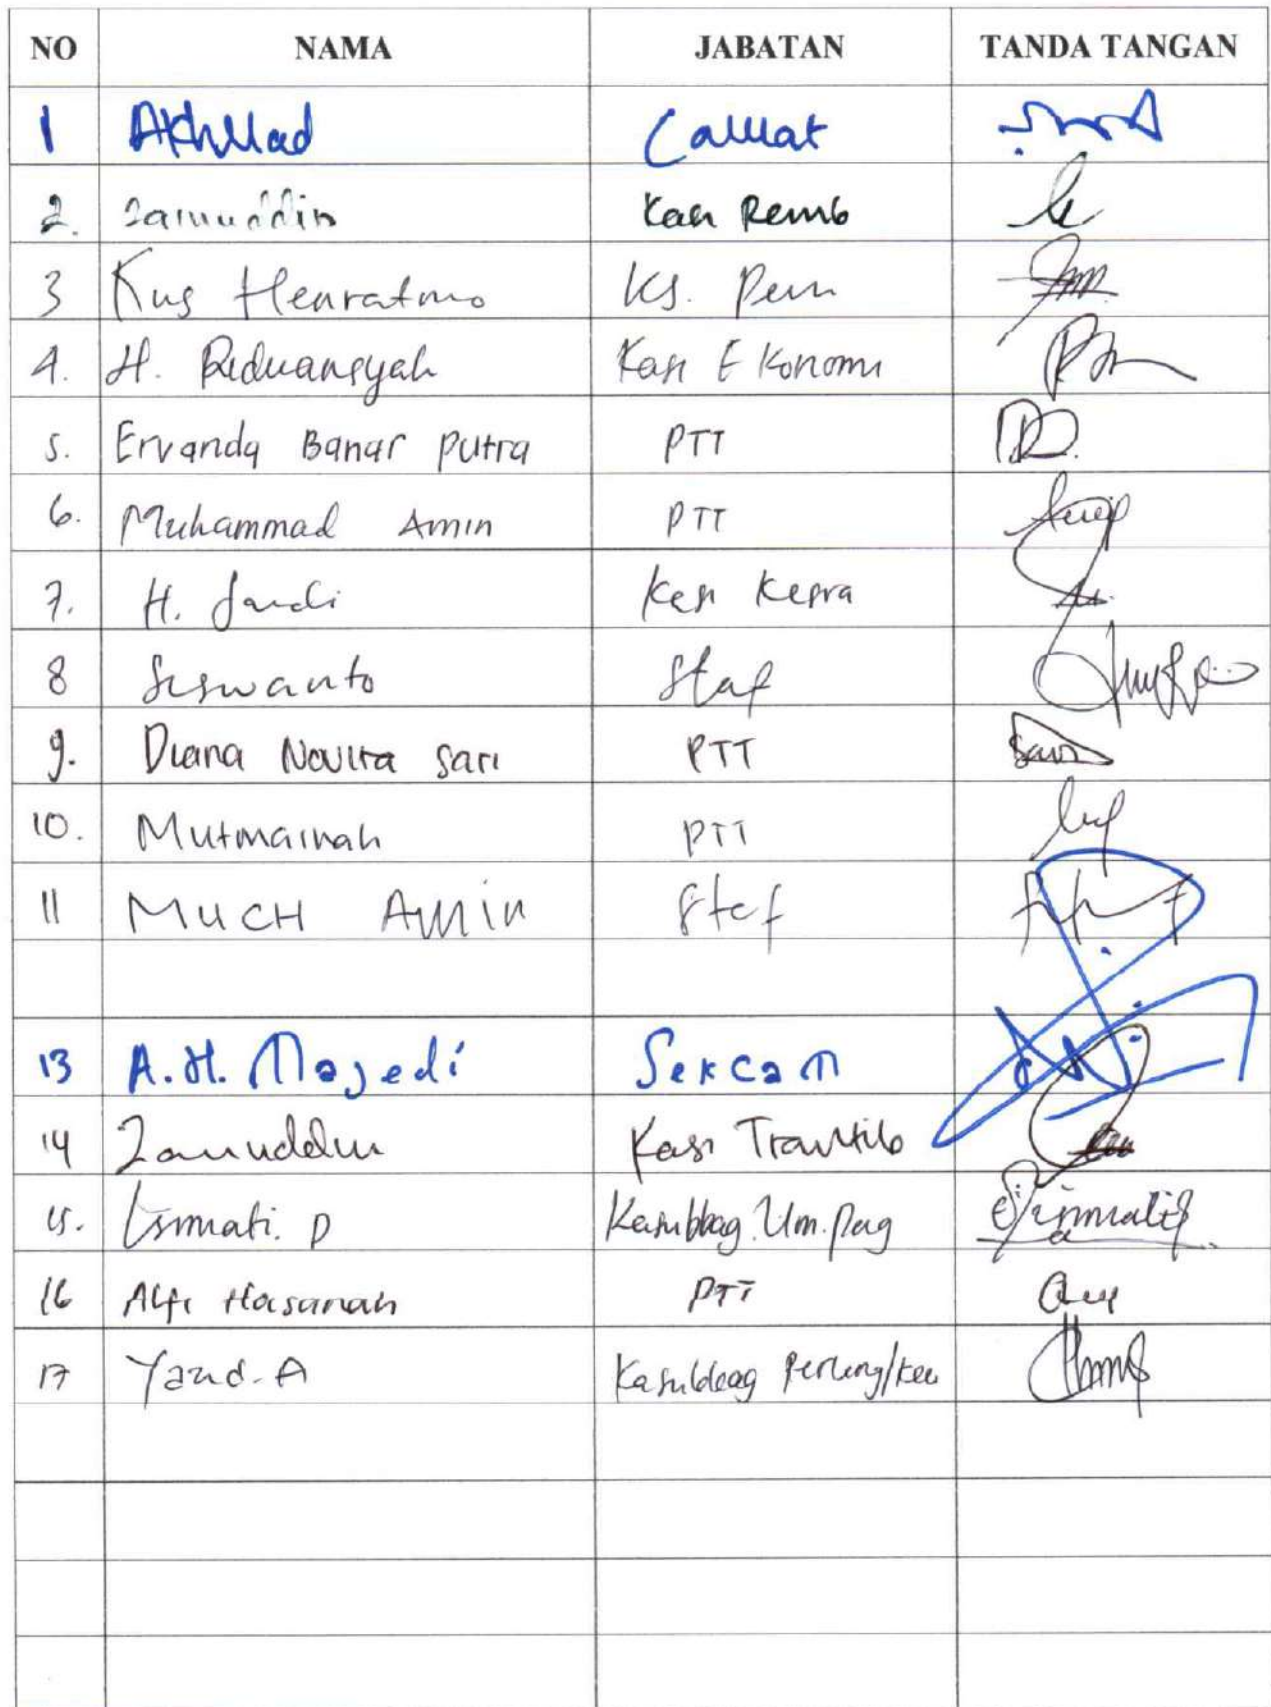 NO NAMA JABATAN TANDA TANGAN
1 Akhmad Camat
2. Jainuddin Kasi Pemb
3 Kus Henratmo Ks. Pem
4. H. Riduansyah Kasi Ekonomi
5. Ervanda Banar Putra PTT
6. Muhammad Amin PTT
7. H. Kasi Kesra
8 Siswanto Staf
9. Diana Novita Sari PTT Sari
10. Mutmainah PTT
11 MUCH AMin Staf
13 A.H. Majedi Sekcam
14 Zainuddin Kasi Trantib
15. Ismiati. P Kasubbag. Um. Peg
16 Alfi Hasanah PTT
17 Yand. A Kasubbag Perleng/keu